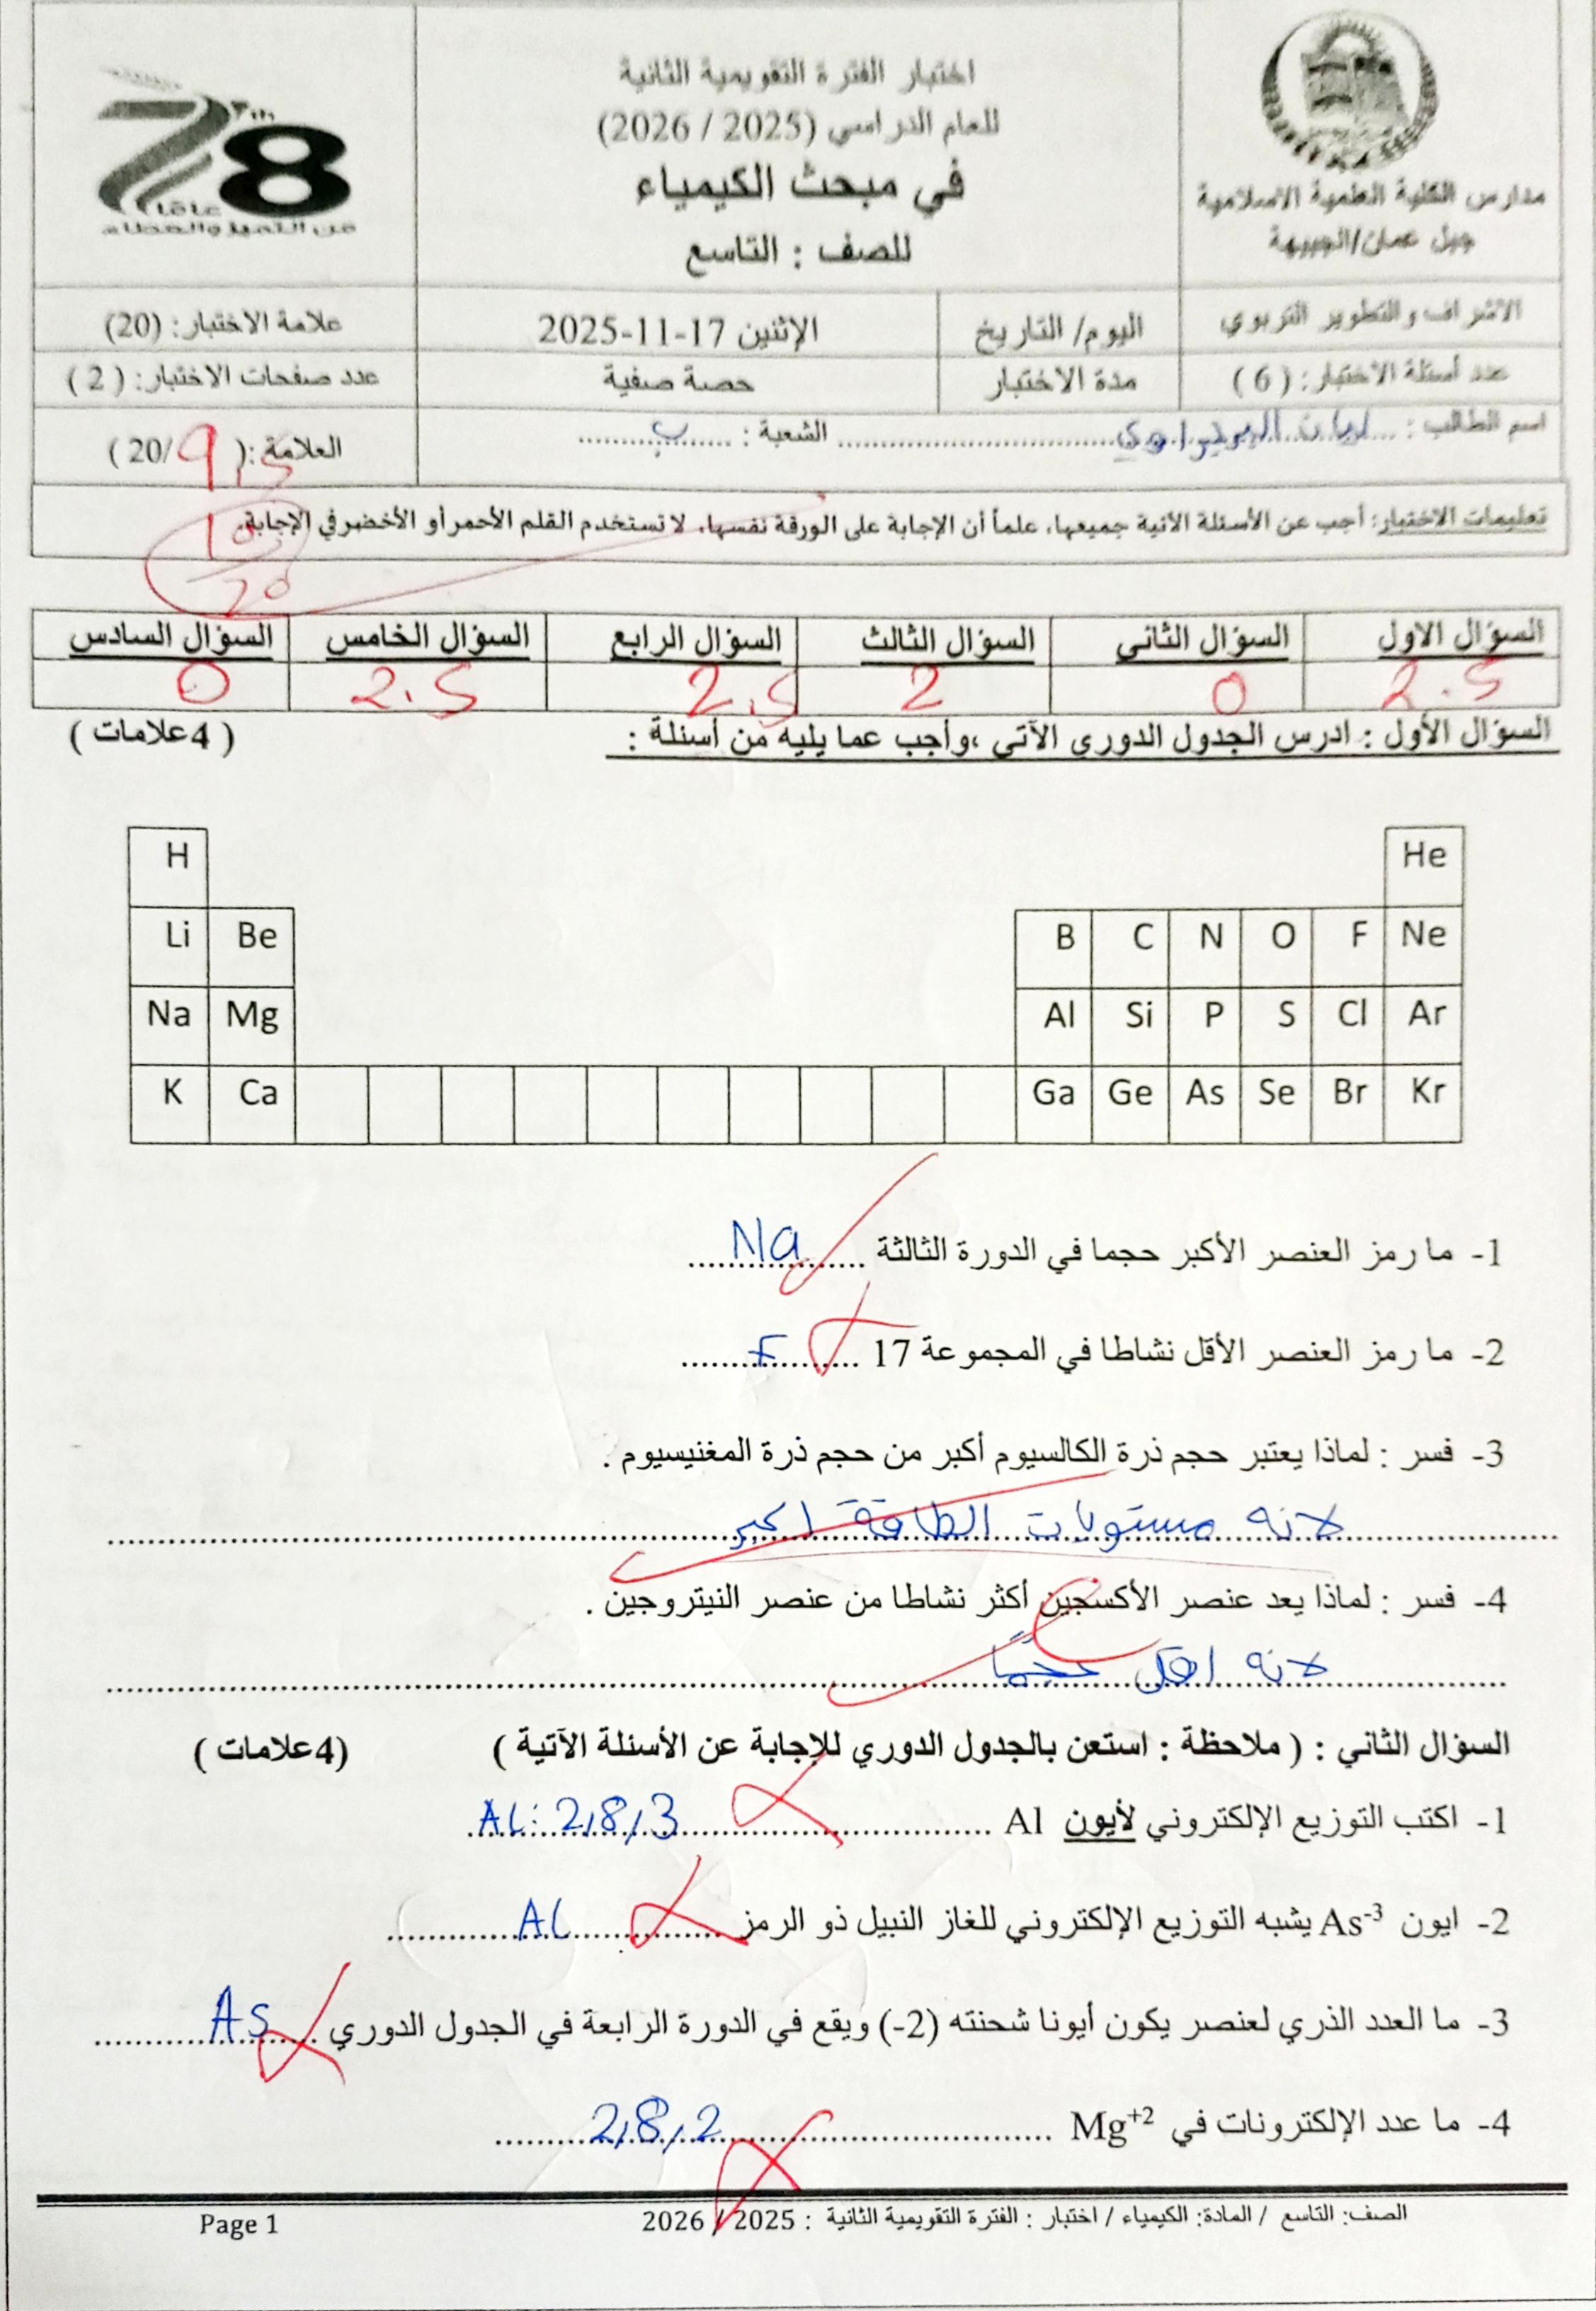 مدارس الكلية العلمية الاسلامية
جبل عمان/الجبيهة
اختبار الفترة التقويمية الثانية
للعام الدراسي (2025 / 2026)
في مبحث الكيمياء
للصف : التاسع
78
عامًا
من التميز والعطاء
الاشراف والتطوير التربوي
اليوم/ التاريخ
الإثنين 17-11-2025
علامة الاختبار: (20)
عدد أسئلة الاختبار: (6)
مدة الاختبار
حصة صفية
عدد صفحات الاختبار: (2)
اسم الطالب : الشعبة : ب
العلامة :( 9 /20)
20
تعليمات الاختبار: أجب عن الأسئلة الآتية جميعها، علماً أن الإجابة على الورقة نفسها، لا تستخدم القلم الأحمر أو الأخضر في الإجابة.
السؤال الاول السؤال الثاني السؤال الثالث السؤال الرابع السؤال الخامس السؤال السادس
2.5 0 2 2.5 2.5 0
السؤال الأول : ادرس الجدول الدوري الآتي ،وأجب عما يليه من أسئلة : (4علامات )
H He
Li Be B C N O F Ne
Na Mg Al Si P S Cl Ar
K Ca Ga Ge As Se Br Kr
1- ما رمز العنصر الأكبر حجما في الدورة الثالثة Na
2- ما رمز العنصر الأقل نشاطا في المجموعة 17 F
3- فسر : لماذا يعتبر حجم ذرة الكالسيوم أكبر من حجم ذرة المغنيسيوم .
لانه مستويات الطاقة اكبر
4- فسر : لماذا يعد عنصر الأكسجين أكثر نشاطا من عنصر النيتروجين .
لانه اقل حجمًا
السؤال الثاني : ( ملاحظة : استعن بالجدول الدوري للإجابة عن الأسئلة الآتية ) (4علامات )
1- اكتب التوزيع الإلكتروني لأيون Al AL: 2,8,3
2- ايون As-3 يشبه التوزيع الإلكتروني للغاز النبيل ذو الرمز AL
3- ما العدد الذري لعنصر يكون أيونا شحنته (2-) ويقع في الدورة الرابعة في الجدول الدوري As
4- ما عدد الإلكترونات في Mg+2 2,8,2
الصف: التاسع / المادة: الكيمياء / اختبار : الفترة التقويمية الثانية : 2025 / 2026
Page 1